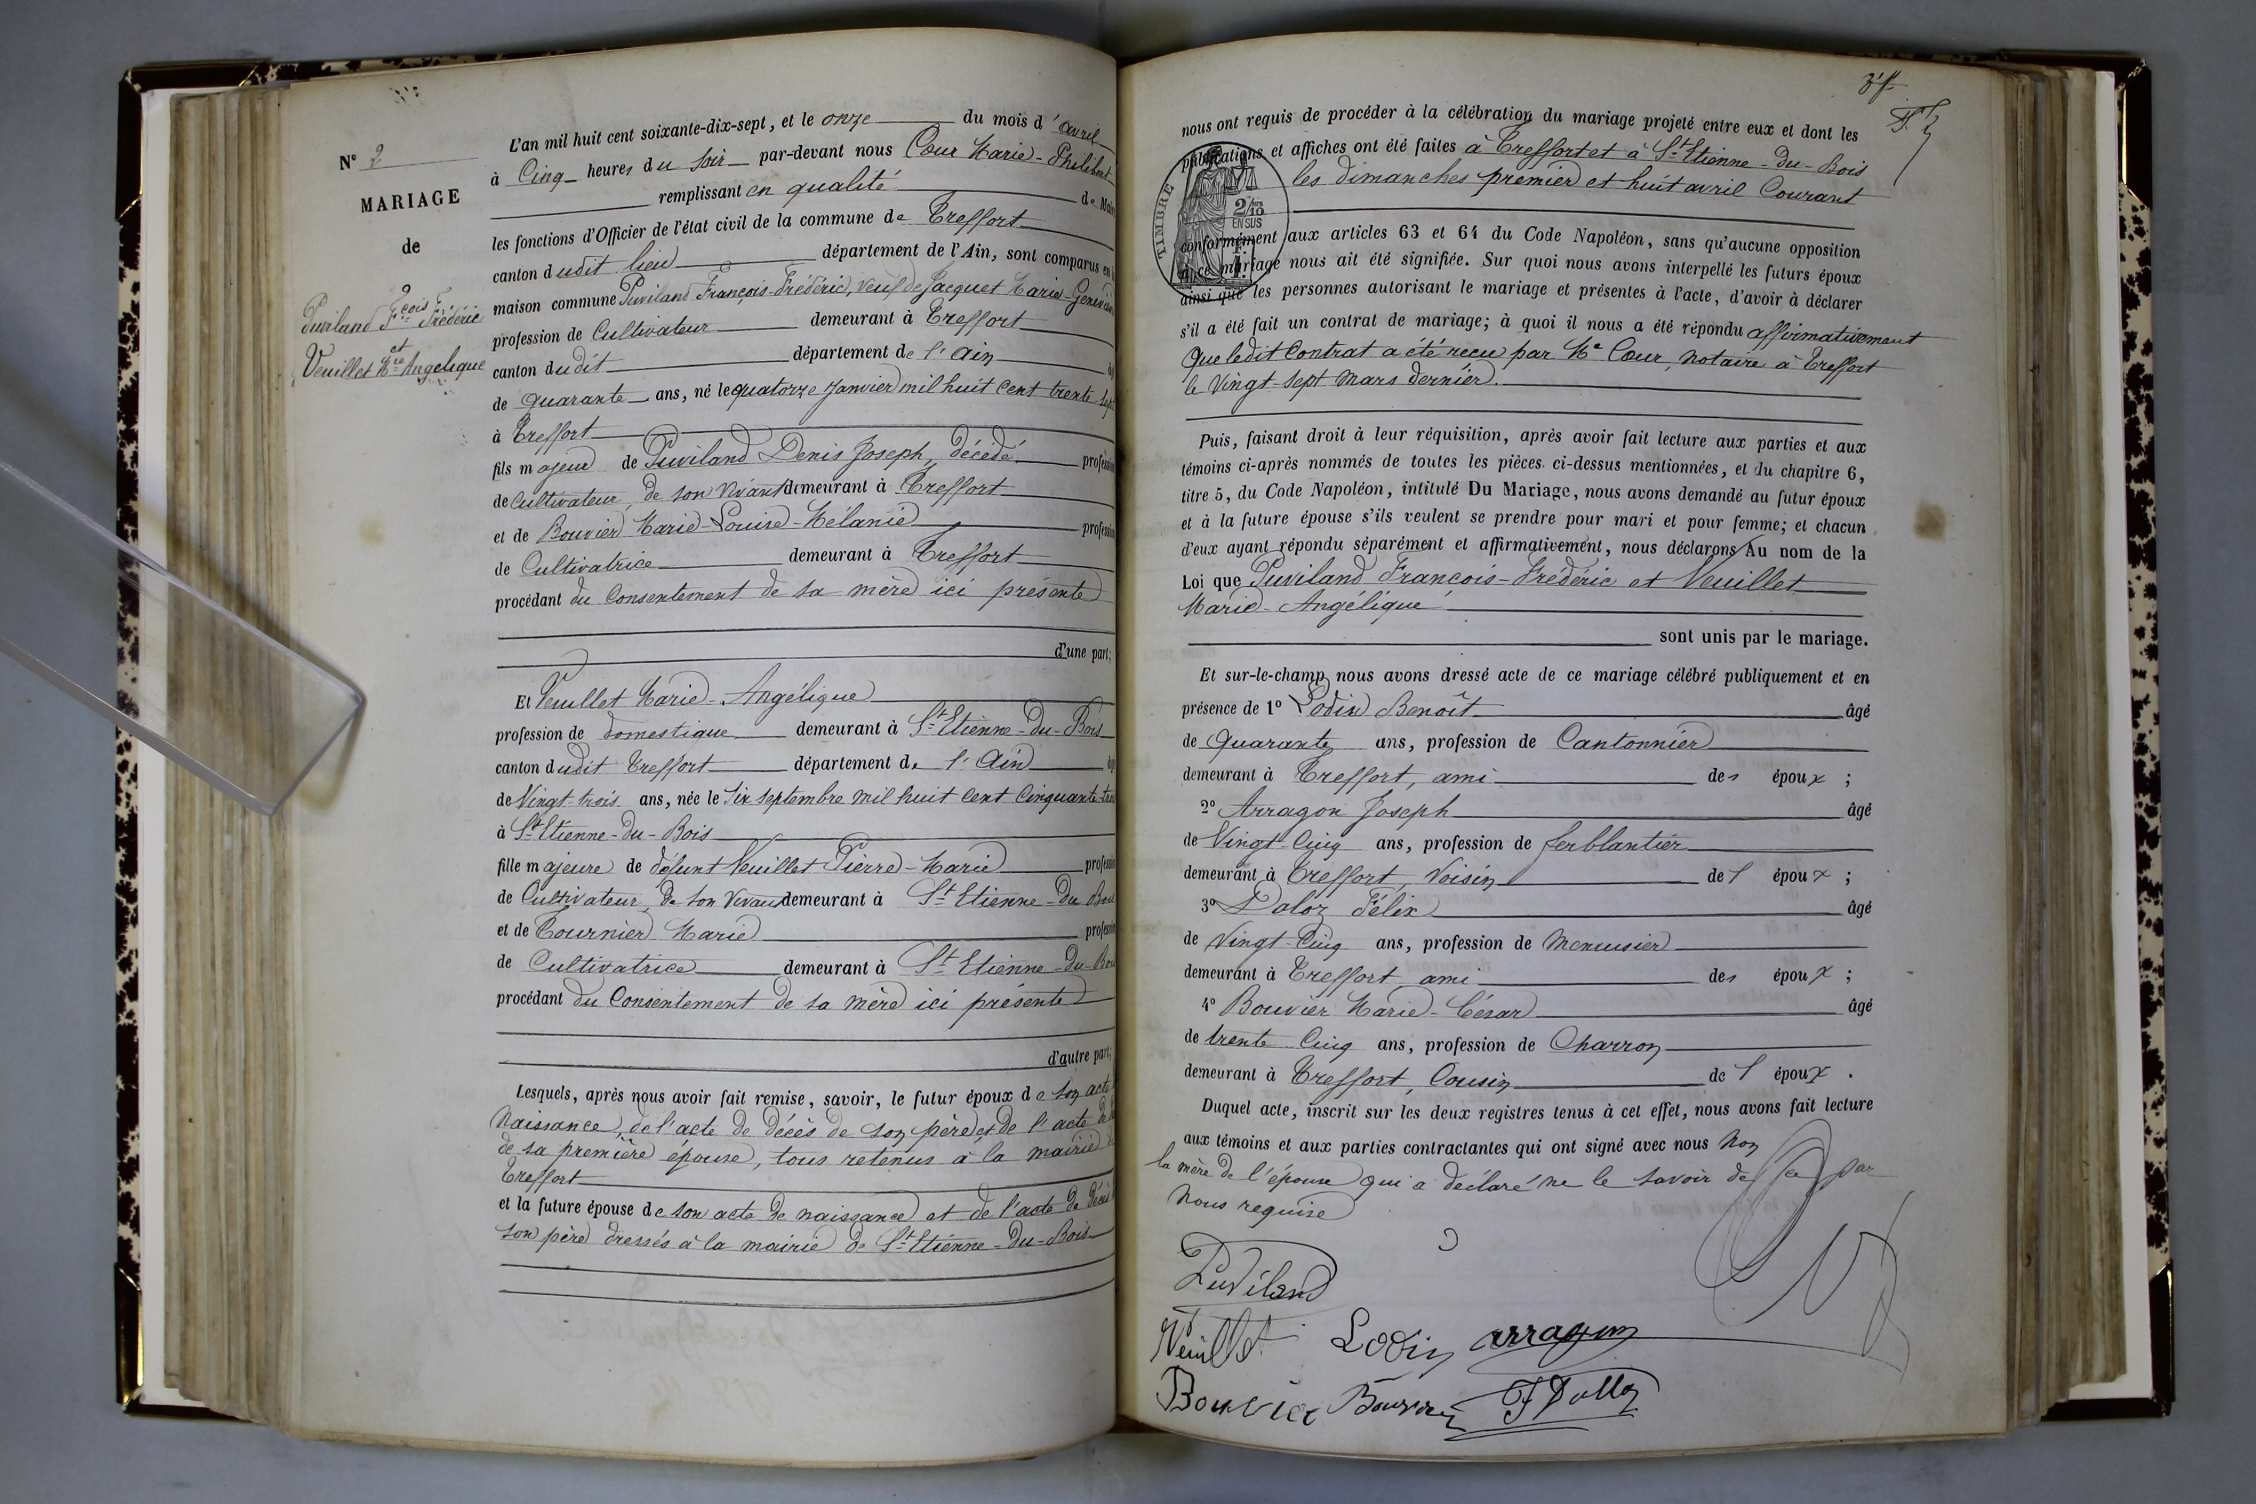 N° 2
MARIAGE
de
Puviland Fçois Frédéric
et
Veuillet Mie Angélique
L'an mil huit cent soixante-dix-sept, et le onze du mois d'avril
à Cinq heures du soir par-devant nous Cour Marie-Philibert
remplissant en qualité de Maire
les fonctions d'Officier de l'état civil de la commune de Treffort
canton dudit lieu département de l'Ain, sont comparus en la
maison commune Puviland François-Frédéric, veuf de Jacquet Marie-Geneviève
profession de Cultivateur demeurant à Treffort
canton dudit département de l'Ain
de quarante ans, né le quatorze Janvier mil huit cent trente-sept
à Treffort
fils majeur de Puviland Denis Joseph, décédé profession
de Cultivateur, de son vivant demeurant à Treffort
et de Bouvier Marie-Louise-Mélanie profession
de Cultivatrice demeurant à Treffort
procédant du Consentement de sa mère ici présente
d'une part;
Et Veuillet Marie-Angélique
profession de domestique demeurant à St Etienne-du-Bois
canton dudit Treffort département de l'Ain
de Vingt-trois ans, née le Six septembre mil huit cent Cinquante-trois
à St Etienne-du-Bois
fille majeure de défunt Veuillet Pierre-Marie profession
de Cultivateur, de son vivant demeurant à St Etienne-du-Bois
et de Tournier Marie profession
de Cultivatrice demeurant à St Etienne-du-Bois
procédant du Consentement de sa mère ici présente
d'autre part;
Lesquels, après nous avoir fait remise, savoir, le futur époux de son acte
Naissance, de l'acte de décès de son père et de l'acte de
de sa première épouse, tous retenus à la mairie
Treffort
et la future épouse de son acte de naissance et de l'acte de décès
son père dressés à la mairie de St Etienne-du-Bois
nous ont requis de procéder à la célébration du mariage projeté entre eux et dont les
publications et affiches ont été faites à Treffort et à St Etienne-du-Bois
les dimanches premier et huit avril Courant
TIMBRE
2/10
EN SUS
conformément aux articles 63 et 64 du Code Napoléon, sans qu'aucune opposition
à ce mariage nous ait été signifiée. Sur quoi nous avons interpellé les futurs époux
ainsi que les personnes autorisant le mariage et présentes à l'acte, d'avoir à déclarer
s'il a été fait un contrat de mariage; à quoi il nous a été répondu affirmativement
Que ledit Contrat a été reçu par Me Cour, notaire à Treffort
le Vingt-sept Mars dernier.
Puis, faisant droit à leur réquisition, après avoir fait lecture aux parties et aux
témoins ci-après nommés de toutes les pièces ci-dessus mentionnées, et du chapitre 6,
titre 5, du Code Napoléon, intitulé Du Mariage, nous avons demandé au futur époux
et à la future épouse s'ils veulent se prendre pour mari et pour femme; et chacun
d'eux ayant répondu séparément et affirmativement, nous déclarons Au nom de la
Loi que Puviland François-Frédéric et Veuillet
Marie-Angélique
sont unis par le mariage.
Et sur-le-champ nous avons dressé acte de ce mariage célébré publiquement et en
présence de 1° Lodin Benoît âgé
de Quarante ans, profession de Cantonnier
demeurant à Treffort, ami des époux ;
2° Arragon Joseph âgé
de Vingt-Cinq ans, profession de ferblantier
demeurant à Treffort, Voisin de l'époux ;
3° Daloz Félix âgé
de Vingt-Cinq ans, profession de Menuisier
demeurant à Treffort, ami des époux ;
4° Bouvier Marie-César âgé
de trente-Cinq ans, profession de Charron
demeurant à Treffort, Cousin de l'époux .
Duquel acte, inscrit sur les deux registres tenus à cet effet, nous avons fait lecture
aux témoins et aux parties contractantes qui ont signé avec nous Non
la mère de l'épouse qui a déclaré ne le savoir de ce par
Nous requise
Puviland
Veuillet Lodin arragon
Bouvier Bouvier F Dalloz